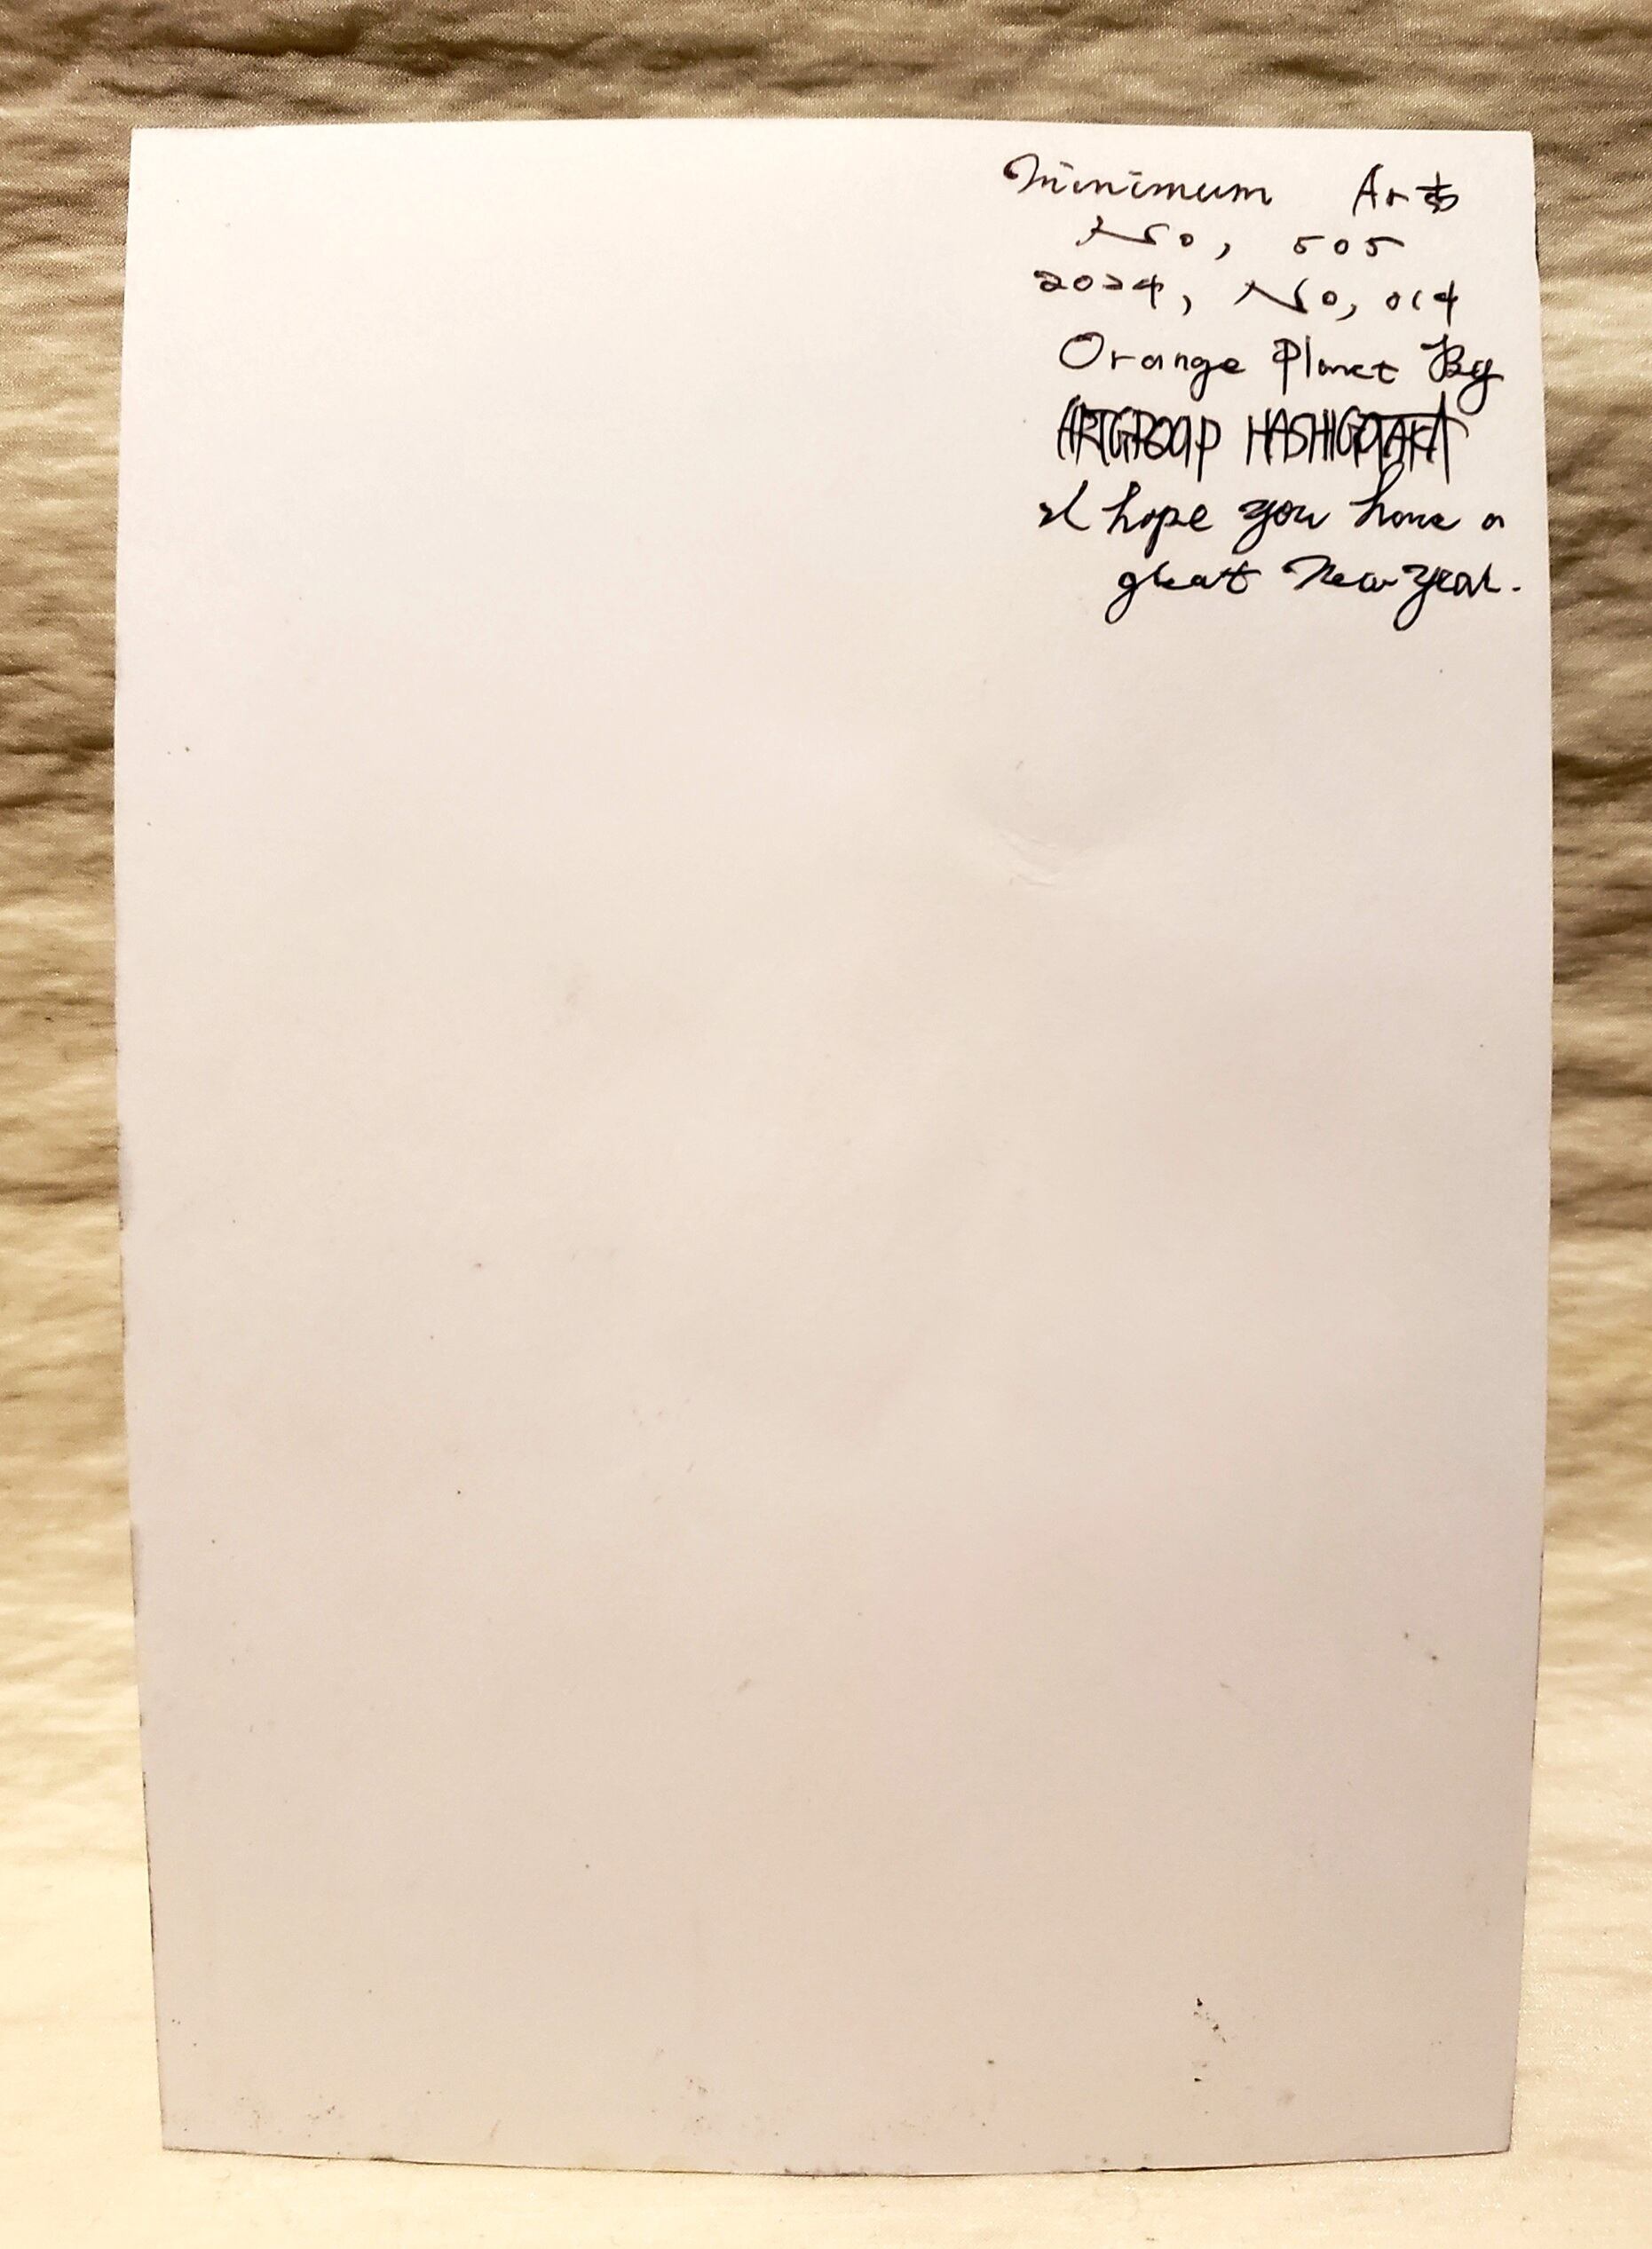 Minimum Arts
No, 505
2024, No, 014
Orange Planet By
ARTGROUP HASHIGOTAKA
I hope you have a
great New Year.